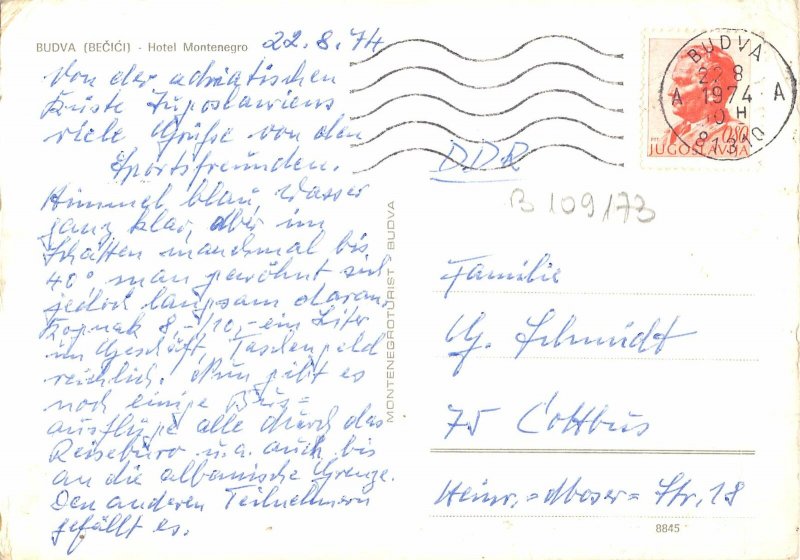 BUDVA (BEČIĆI) - Hotel Montenegro
22.8.74
Von der adriatischen
Küste Jugoslawiens
viele Grüße von den
Sportsfreunden.
Himmel blau, Wasser
ganz klar, aber im
Schatten manchmal bis
40° man gewöhnt sich
jedoch langsam daran.
Kognak 8,-/10,- ein Liter
im Geschäft, Taschengeld
reichlich. Nun gibt es
noch einige Bus=
ausflüge alle durch das
Reisebüro u.a. auch bis
an die albanische Grenze.
Den anderen Teilnehmern
gefällt es.
MONTENEGROTURIST - BUDVA
BUDVA
22 8
A 1974 A
10 H
81310
0,80
JUGOSLAVIJA
DDR
B 109/73
Familie
G. Schmidt
75 Cottbus
Heinr.=Moser=Str. 18
8845